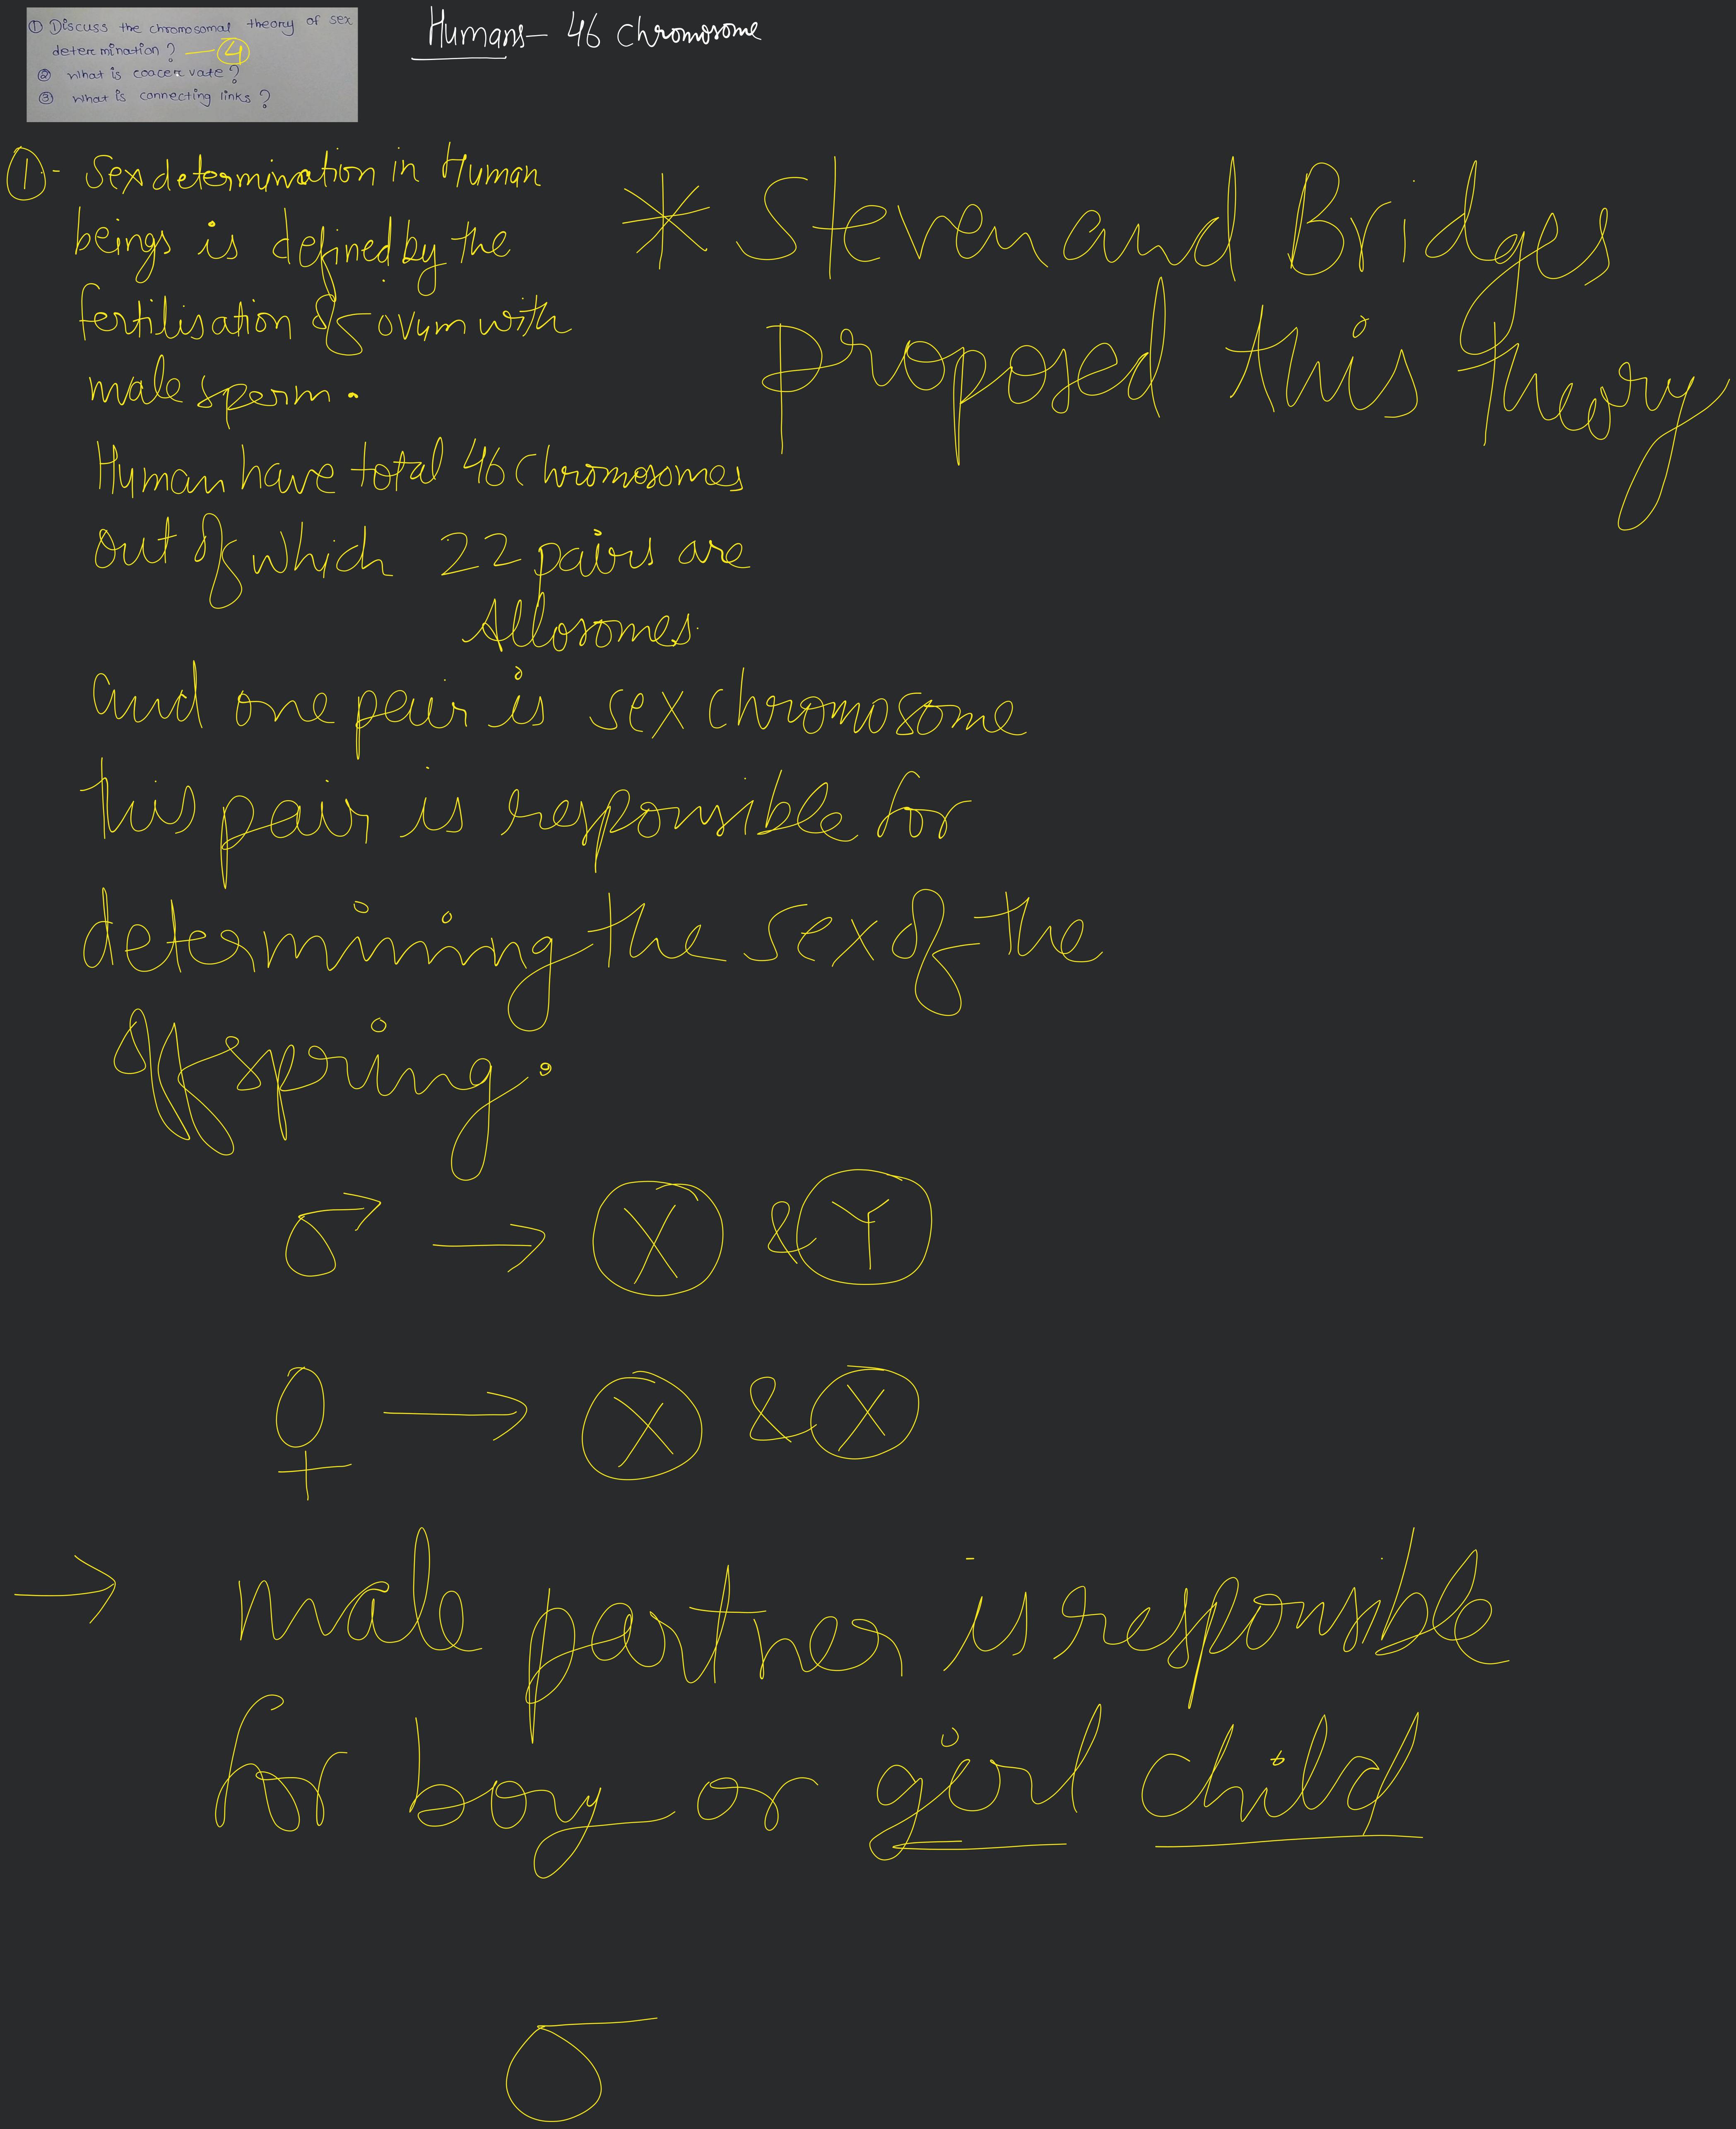 ① Discuss the chromosomal theory of sex
determination? — ④
② What is coacervate?
③ What is connecting links?
Humans- 46 chromosome
①- Sex determination in Human
beings is defined by the
fertilisation of ovum with
male sperm.
Human have total 46 Chromosomes
out of which 22 pairs are
Allosomes.
and one pair is sex chromosome
this pair is responsible for
determining the sex of the
Offspring.
* Steven and Bridges
proposed this theory
♂ → X & Y
♀ → X & X
→ male partner is responsible
for boy or girl child